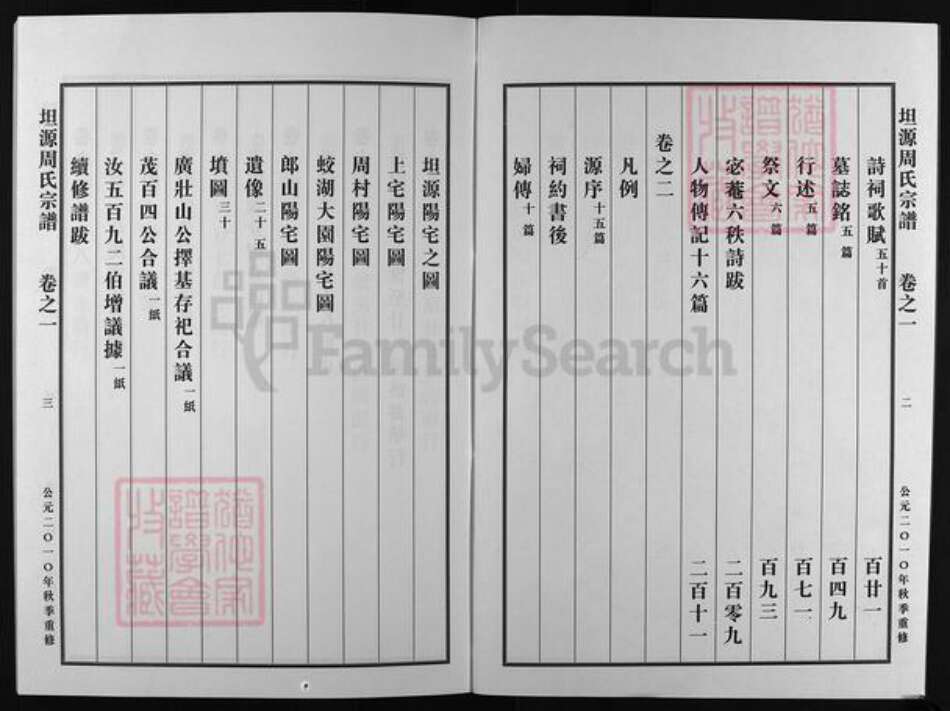 坦源周氏宗譜 卷之一 二 公元二〇一〇年秋季重修
詩祠歌賦 五十首 百廿一
墓誌銘 五篇 百四九
行述 五篇 百七一
祭文 六篇 百九三
宓菴六秩詩跋 二百零九
人物傳記十六篇 二百十一
卷之二
凡例
源序 十五篇
祠約書後
婦傳 十篇
坦源陽宅之圖
上宅陽宅圖
周村陽宅圖
蛟湖大園陽宅圖
郎山陽宅圖
遺像 二十五
墳圖 三十
廣壯山公擇基存祀合議 一紙
茂百四公合議 一紙
汝五百九二伯增議據 一紙
續修譜跋
坦源周氏宗譜 卷之一 三 公元二〇一〇年秋季重修
FamilySearch